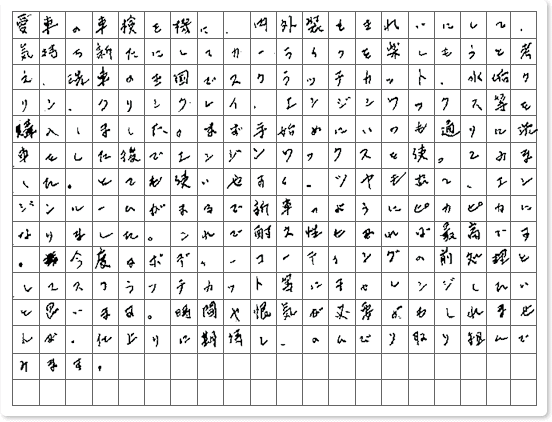 愛車の車検を機に、内外装もきれいにして、
気持ち新たにしてカーライフを楽しもうと考
え、洗車の王国でスクラッチカット、水垢ク
リン、クリンクレイ、エンジンワックス等を
購入しました。まず手始めにいつも通りに洗
車をした後でエンジンワックスを使ってみま
した。とても使いやすく、ツヤも出て、エン
ジンルームがまるで新車のようにピカピカに
なりました。これで耐久性もあれば最高です
。今度はボディーコーティングの前処理と
してスクラッチカット等にチャレンジしたい
と思います。時間や根気が必要かもしれませ
んが、仕上りに期待し、のんびり取り組んで
みます。